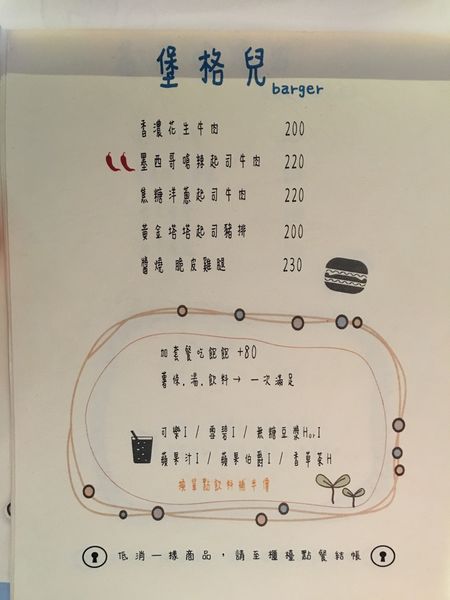 堡格兒
barger
香濃花生牛肉 200
墨西哥嗆辣起司牛肉 220
焦糖洋蔥起司牛肉 220
黃金塔塔起司豬排 200
醬燒 脆皮雞腿 230
加套餐吃飽飽 +80
薯條.湯.飲料→ 一次滿足
可樂I / 雪碧I / 無糖豆漿HorI
蘋果汁I / 蘋果伯爵I / 香草茶H
換單點飲料補半價
低消一樣商品，請至櫃檯點餐結帳